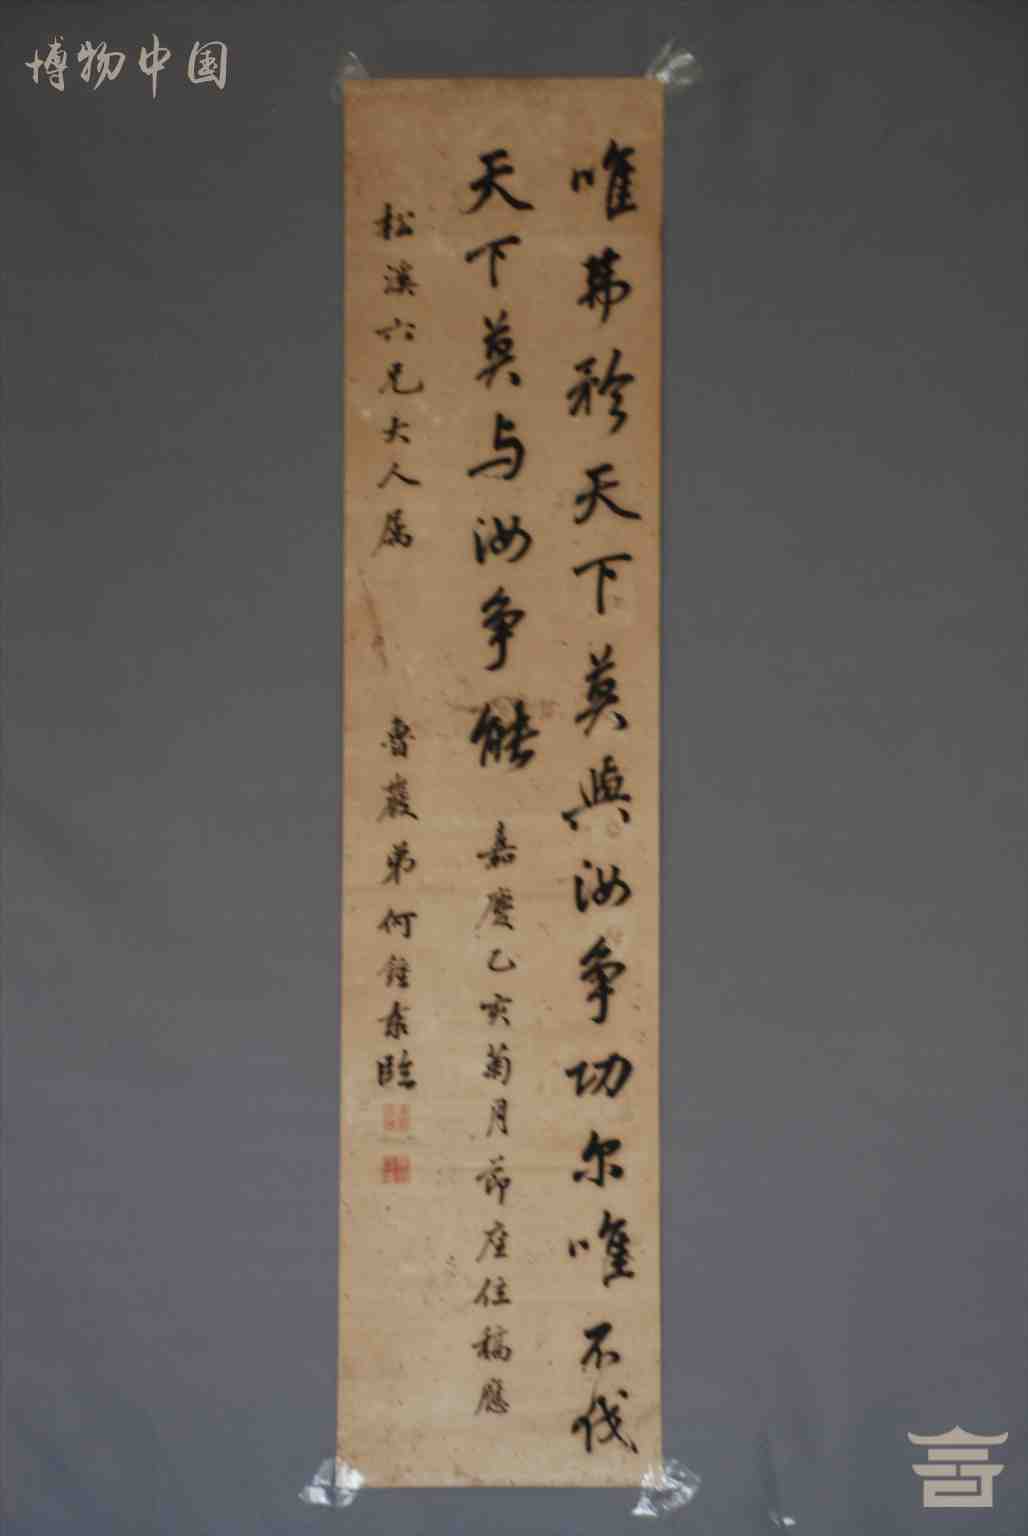 博物中国
唯弗矜天下莫與汝争功尔唯不伐
天下莫与汝争能
嘉慶乙亥菊月節座位稿應
松溪六兄大人属
魯巖弟何鍾泰臨